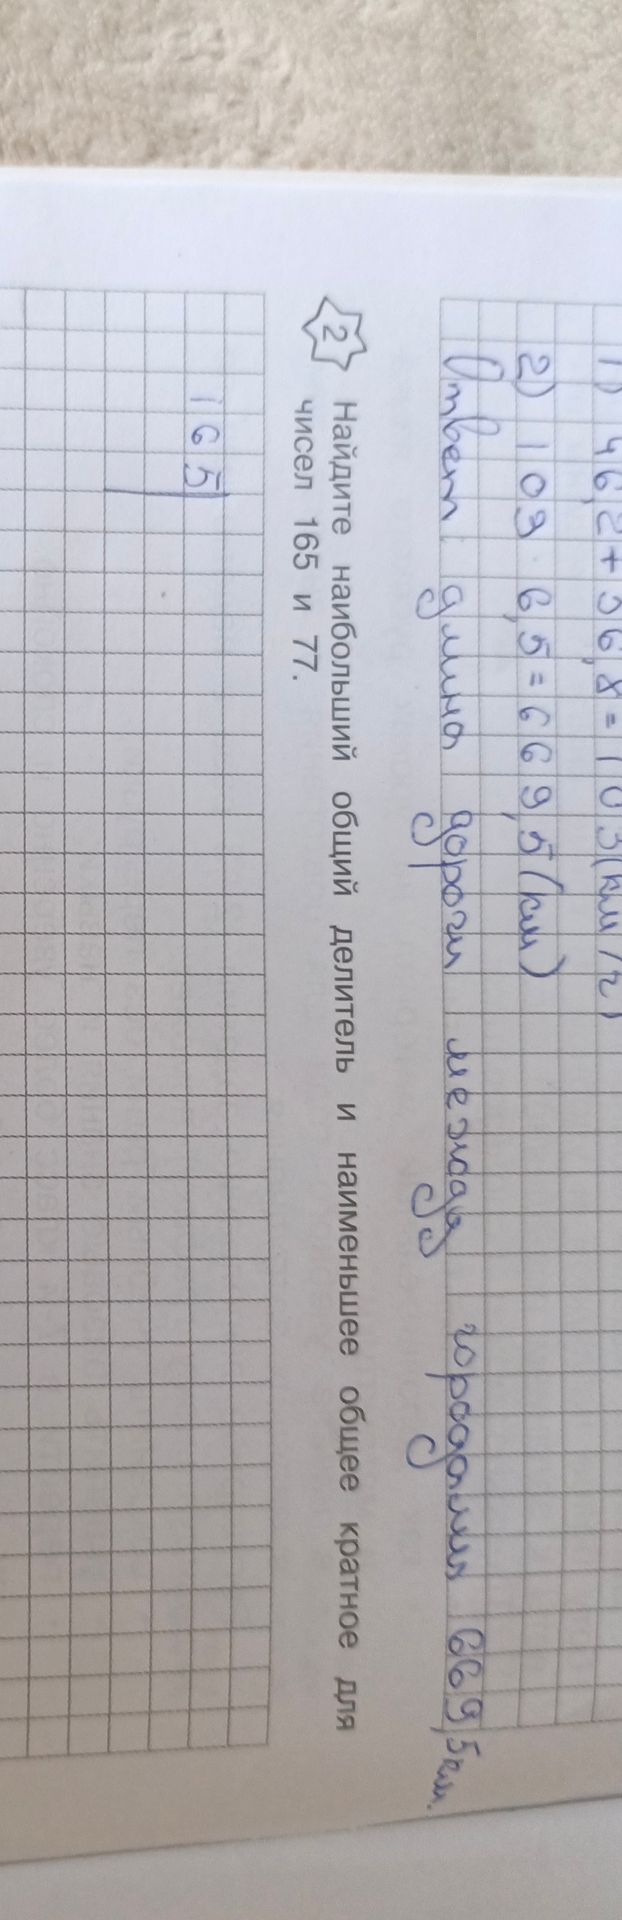 1) 46,2+56,8=103(км/ч)
2) 103·6,5=669,5(км)
Ответ: длина дороги между городами 669,5км.
2 Найдите наибольший общий делитель и наименьшее общее кратное для
чисел 165 и 77.
165